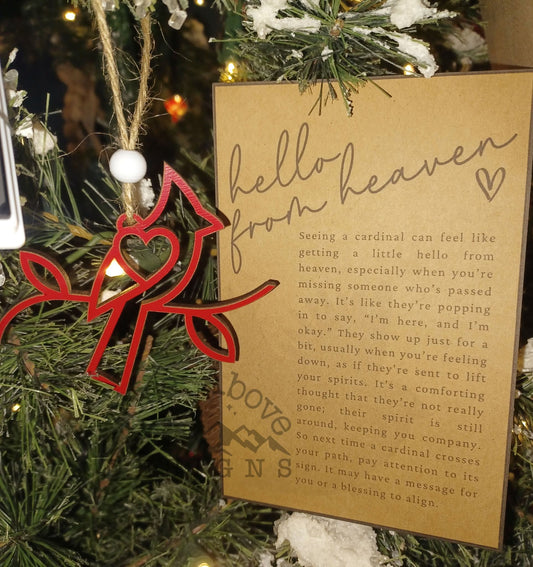 hello
from heaven
Seeing a cardinal can feel like
getting a little hello from
heaven, especially when you're
missing someone who's passed
away. It's like they're popping
in to say, "I'm here, and I'm
okay." They show up just for a
bit, usually when you're feeling
down, as if they're sent to lift
your spirits. It's a comforting
thought that they're not really
gone; their spirit is still
around, keeping you company.
So next time a cardinal crosses
your path, pay attention to its
sign. It may have a message for
you or a blessing to align.
bove
GNS